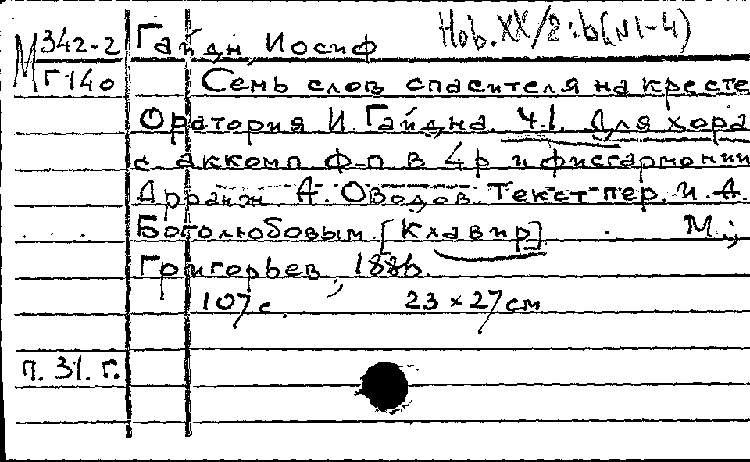 М 342-2 Гайдн, Иосиф Hob. XX/2:b (N1-4)
Г 140 Семь слов спасителя на кресте
Оратория И. Гайдна. Ч.1. Для хора
с аккомп. ф-п в 4 р и фисгармонии
Арранж. А. Оводов. Текст пер. И. А.
Боголюбовым. [Клавир] М.;
Григорьев, 1886.
107 с. 23 × 27 см
п. 31. г.